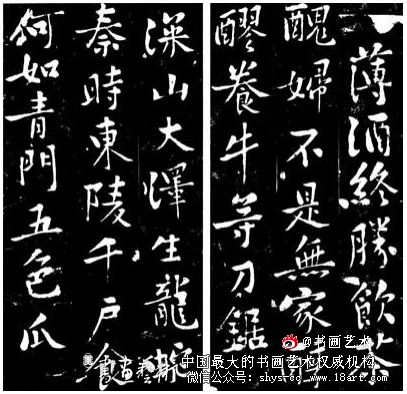 薄酒終勝飲茶
醜婦不是無家醇
醪養牛等刀鋸
深山大澤生龍蛇
秦時東陵千戶食
何如青門五色瓜
@书画艺术
中国最大的书画艺术权威机构
微信公众号: shysrcg www.18art.com